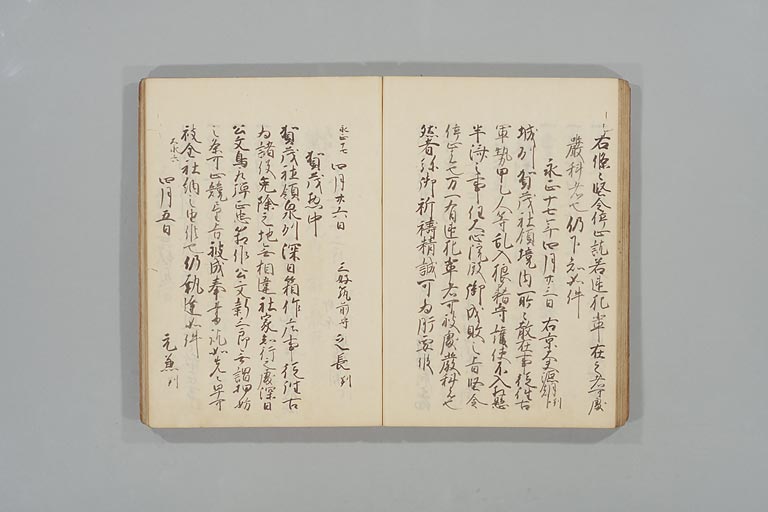 右條々堅令停止訖若違犯輩在之者可處
嚴科者也仍下知如件
永正十七年四月廿三日 右京大夫源朝臣判
城州賀茂社領境内所々散在事從往古
軍勢甲乙人等乱入狼藉守護使不入在懸
半済之事任入心院殿御成敗之旨堅令
停止之也万一有違犯輩者可被處嚴科之也
然者弥御祈禱精誠可為肝要候
永正十七 四月廿六日 三好筑前守 之長 判
賀茂惣中
賀茂社領泉州深日箱作庄事從往古
為諸役免除之地無相違社家知行之處深日
公文鳥取弾正忠箱作公文新三郎無謂押妨
之条可止競望旨被成奉書訖如先々早可
被全社納之由候也仍執達如件
大永六 四月五日 元兼 判